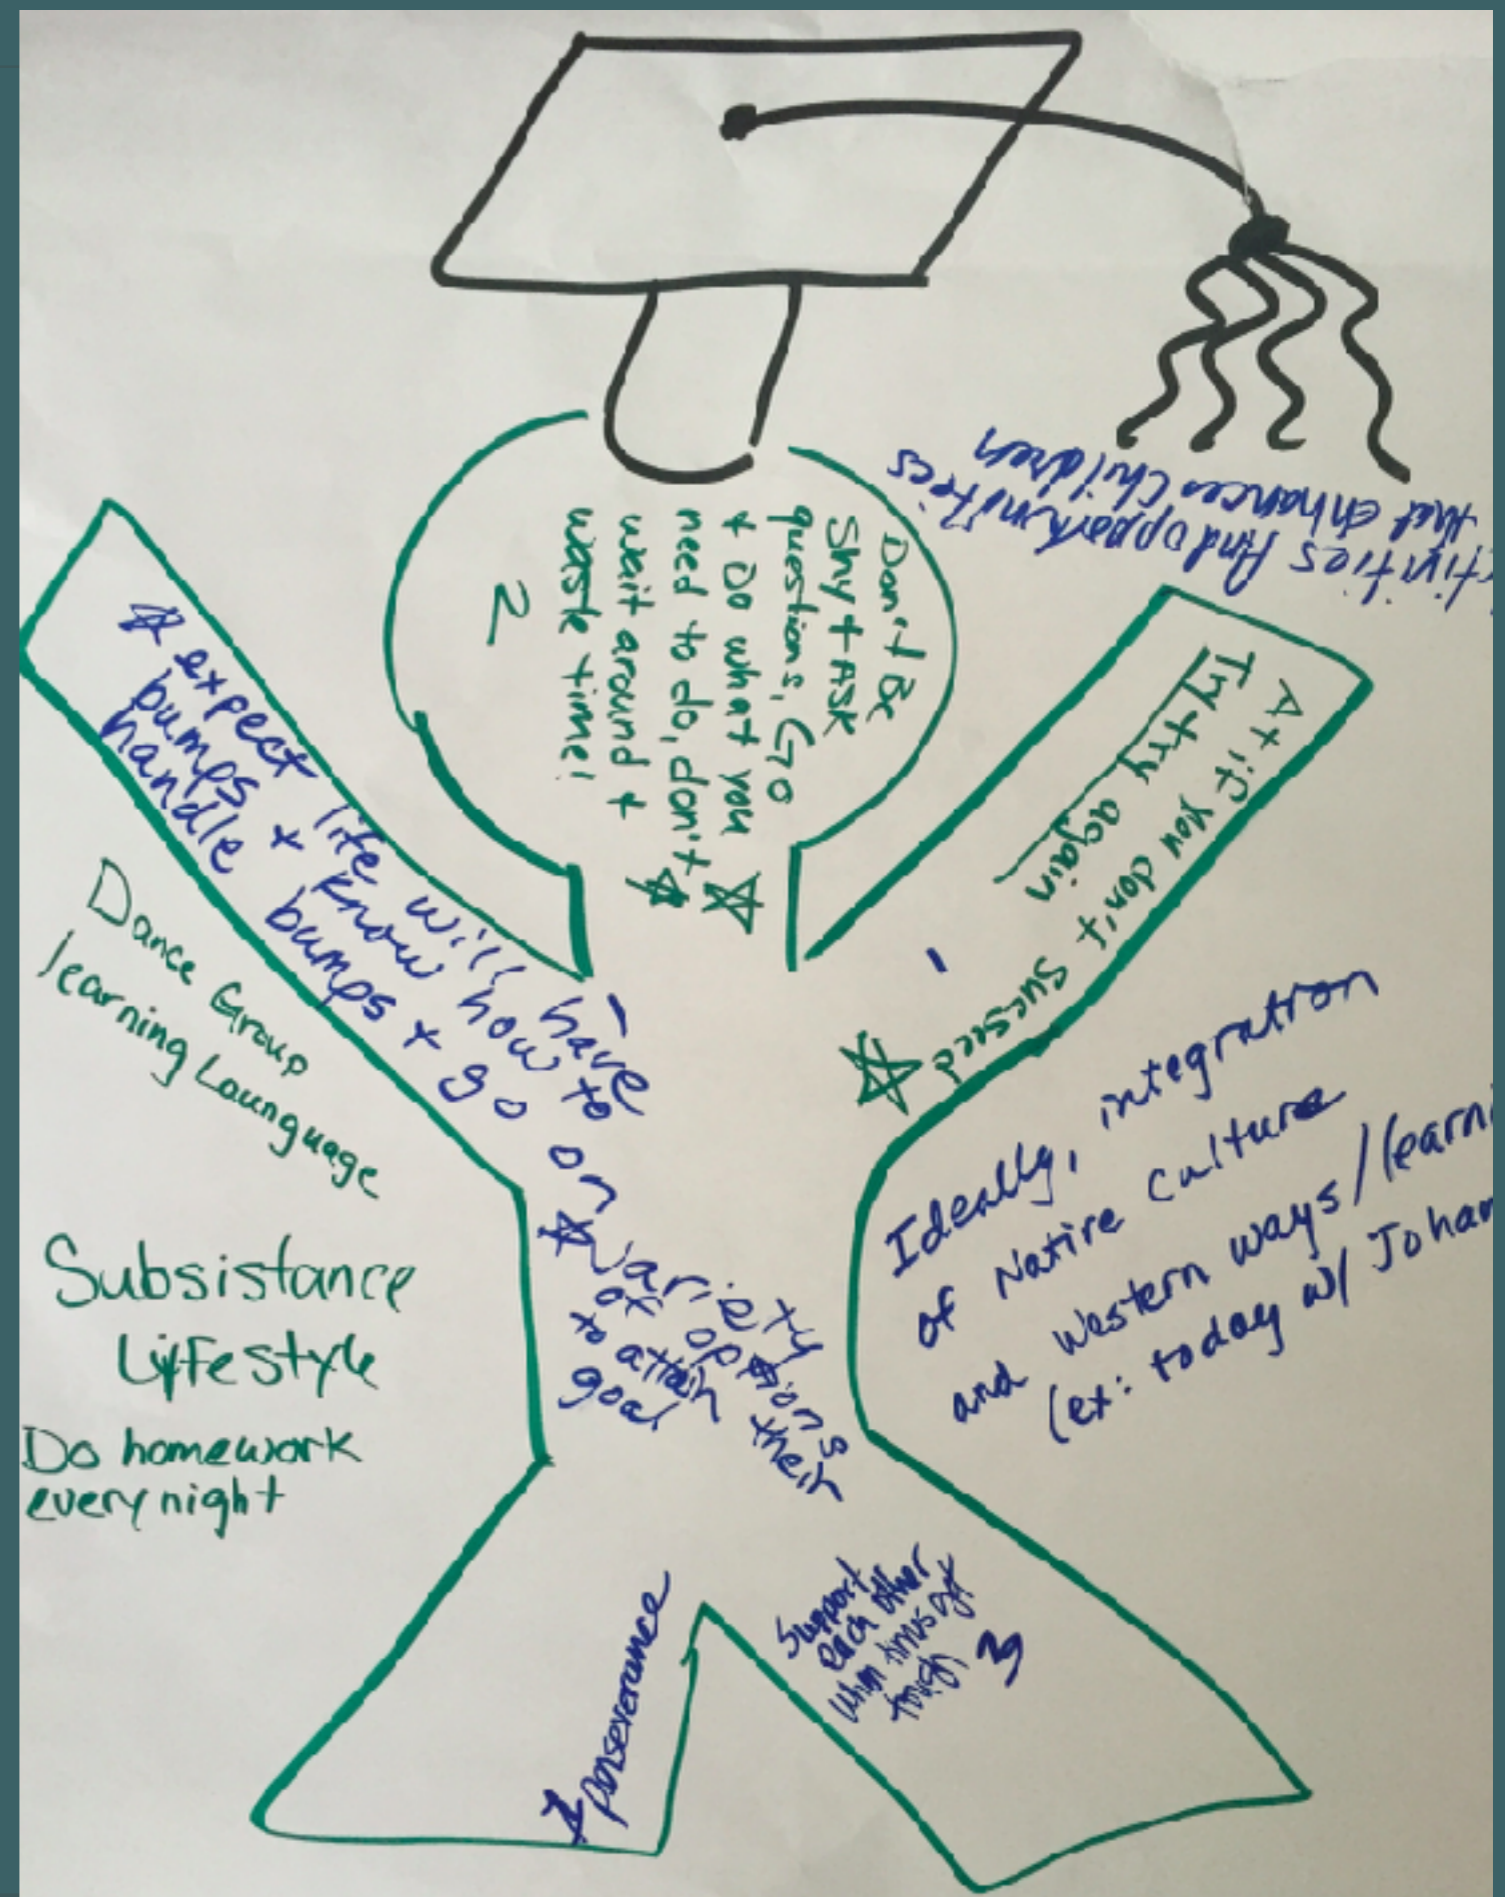 tivities And opportunitees
that enhances children
Don't Be
Shy + ASK
questions, Go
+ DO what you
need to do, don't
wait around +
waste time!
2
A+ if you don't sucseed
Try try again
expect life will have
bumps + know how to
handle bumps + go on
Dance Group
learning Launguage
Subsistance
Lyfestyle
Do homework
every night
Variety
of options
to attain their
goal
Ideally, integration
of Native culture
and western ways/learni
(ex: today w/ Johan
perseverance
Support
each other
when times get
tough
3